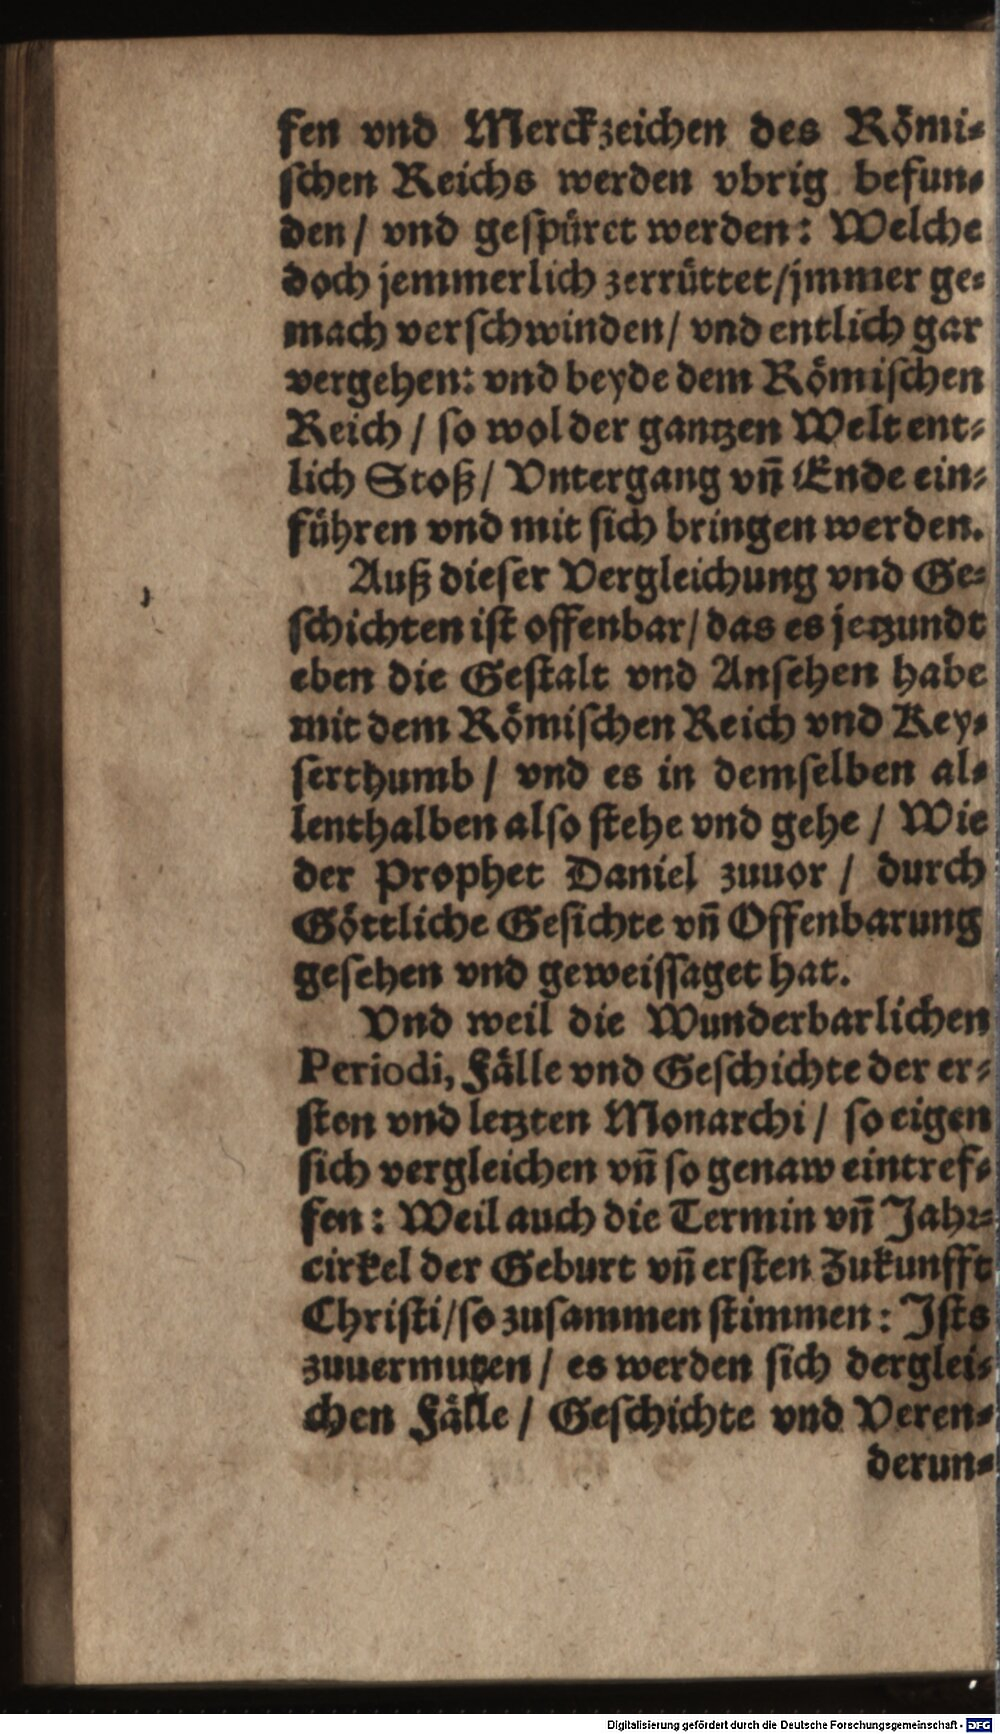 fen vnd Merckzeichen des Römi-
schen Reichs werden vbrig befun-
den / vnd gespüret werden: Welche
doch jemmerlich zerrüttet/jmmer ge-
mach verschwinden/ vnd entlich gar
vergehen: vnd beyde dem Römischen
Reich / so wol der gantzen Welt ent-
lich Stoß/ Vntergang vñ Ende ein-
führen vnd mit sich bringen werden.
Auß dieser Vergleichung vnd Ge-
schichten ist offenbar/ das es jetzundt
eben die Gestalt vnd Ansehen habe
mit dem Römischen Reich vnd Key-
serthumb / vnd es in demselben al-
lenthalben also stehe vnd gehe / Wie
der Prophet Daniel zuuor / durch
Göttliche Gesichte vñ Offenbarung
gesehen vnd geweissaget hat.
Vnd weil die Wunderbarlichen
Periodi, Fälle vnd Geschichte der er-
sten vnd letzten Monarchi / so eigen
sich vergleichen vñ so genaw eintref-
fen: Weil auch die Termin vñ Jahr-
cirkel der Geburt vñ ersten Zukunfft
Christi/so zusammen stimmen: Ists
zuuermutzen / es werden sich derglei-
chen Fälle / Geschichte vnd Veren-
derun-
Digitalisierung gefördert durch die Deutsche Forschungsgemeinschaft - DFG